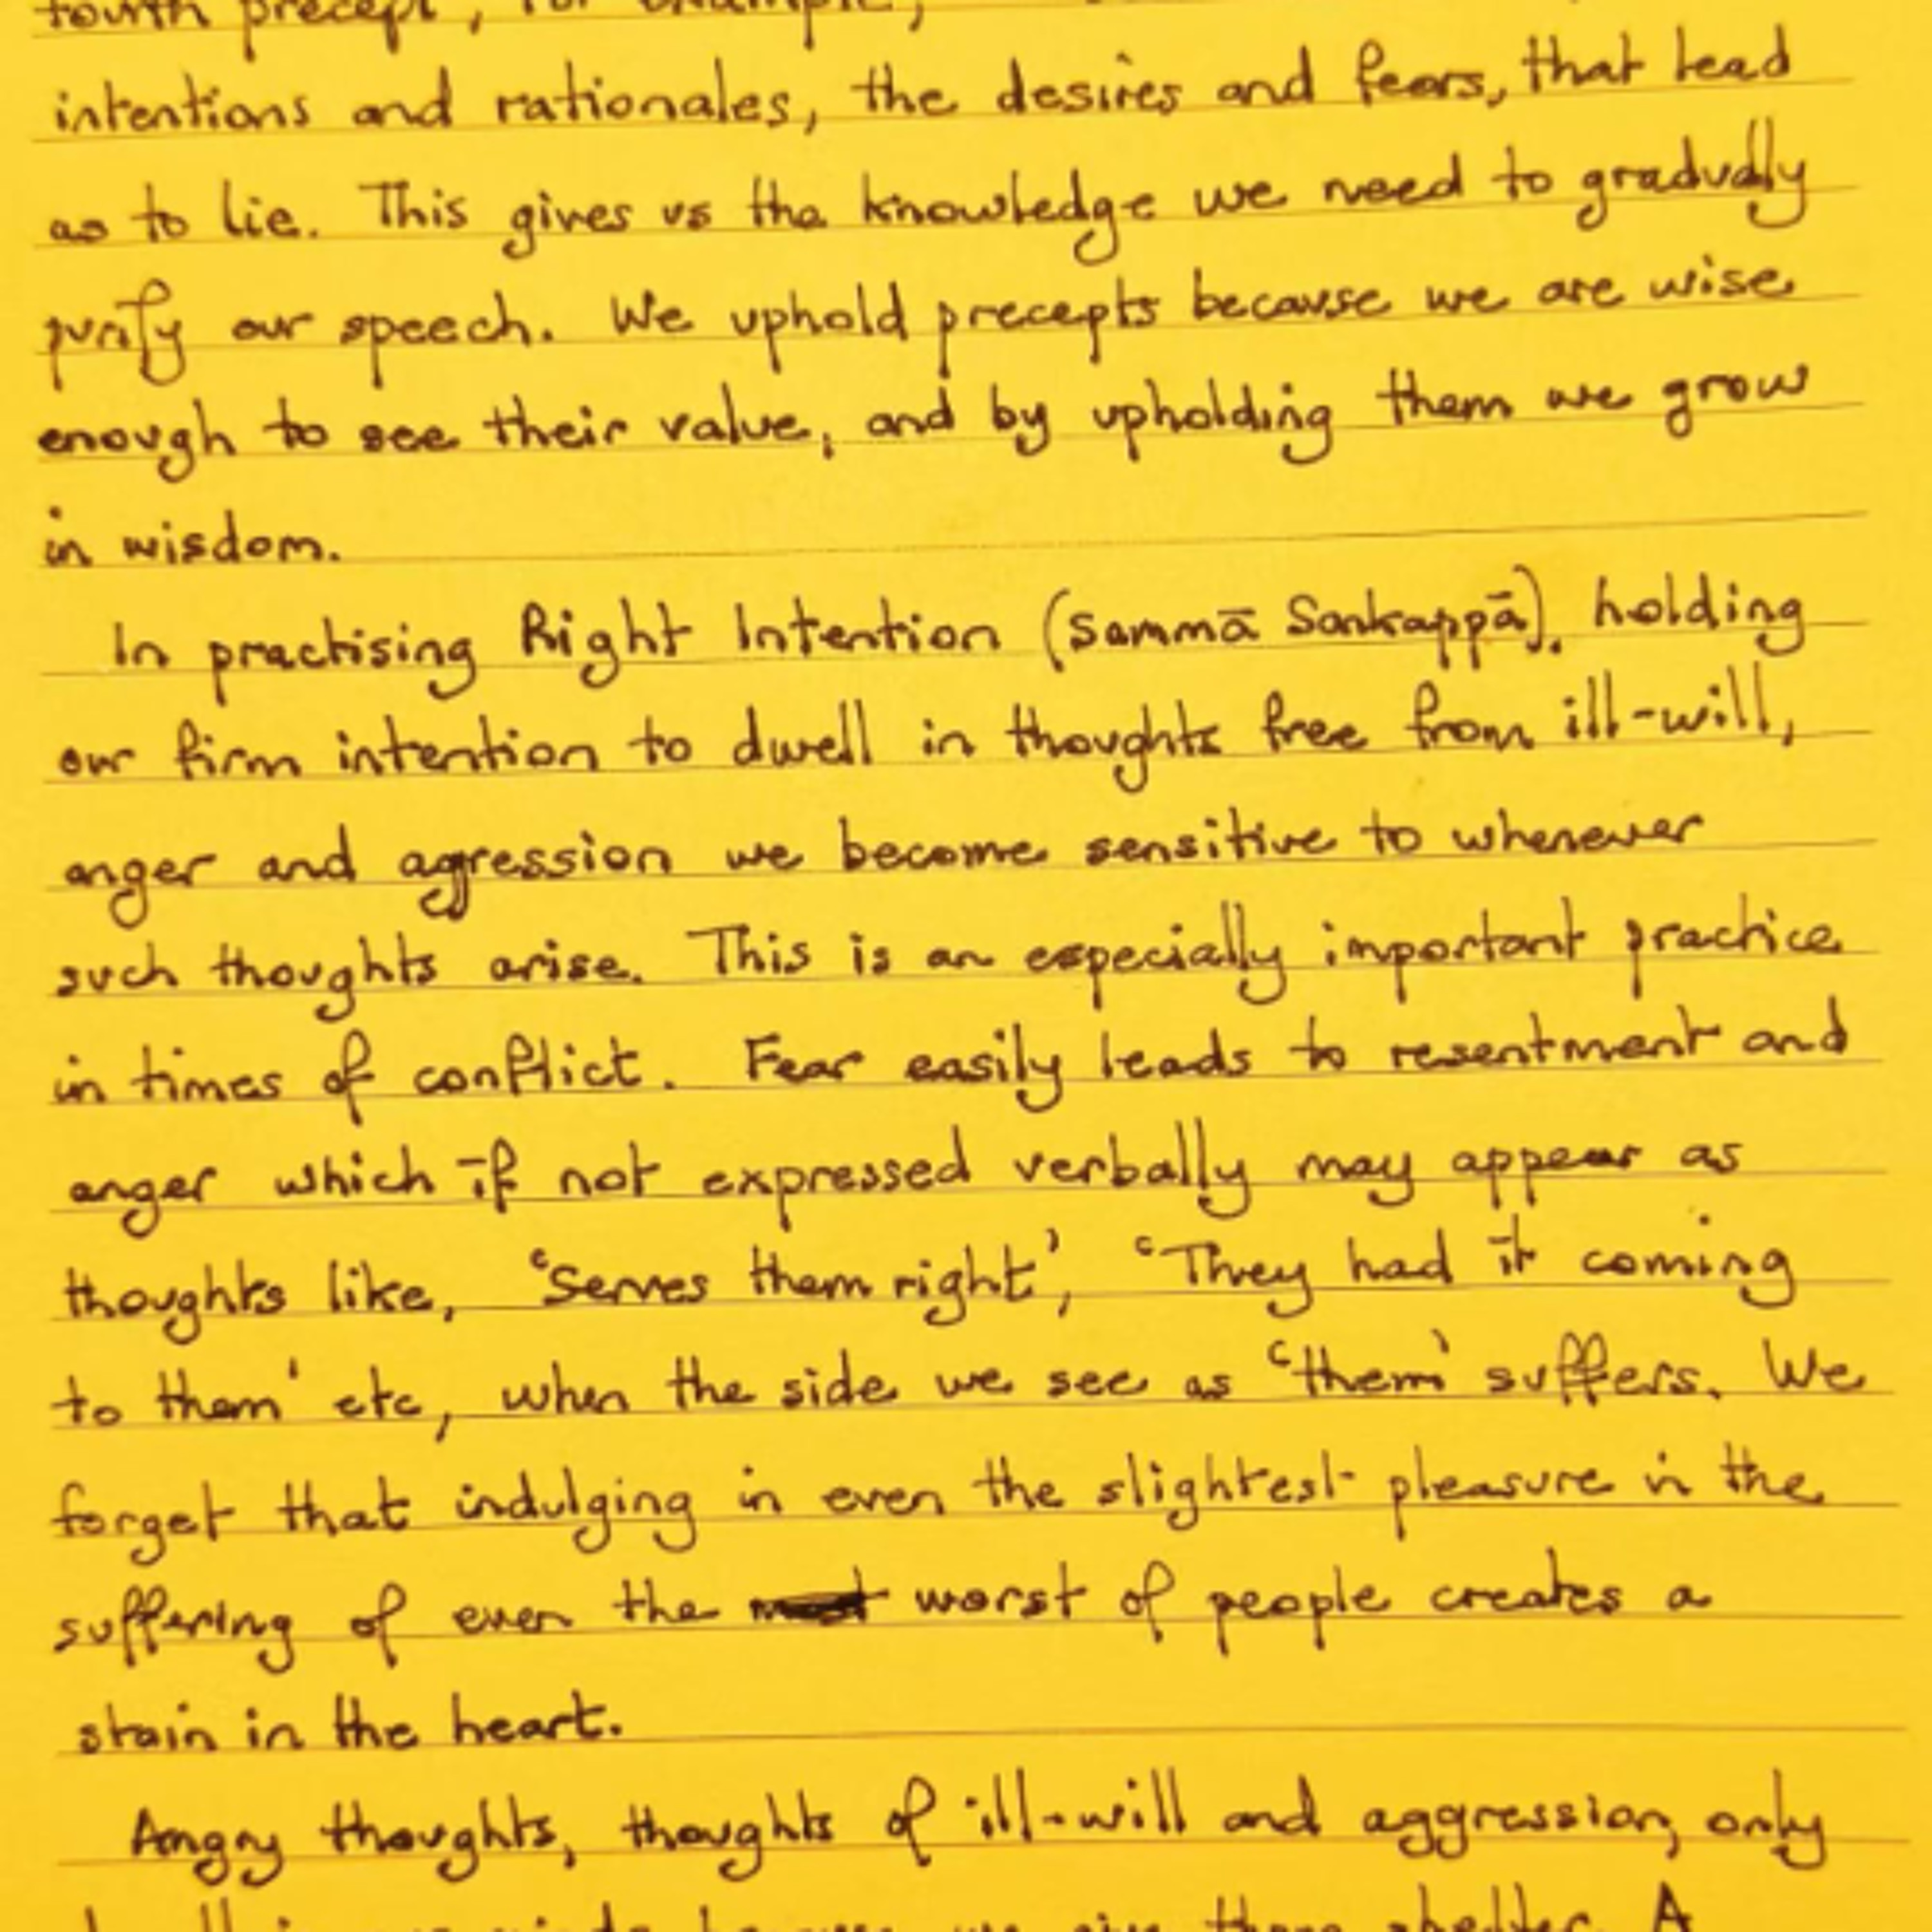 fourth precept, for example,
intentions and rationales, the desires and fears, that lead
as to lie. This gives us the knowledge we need to gradually
purify our speech. We uphold precepts because we are wise
enough to see their value, and by upholding them we grow
in wisdom.
In practising Right Intention (Sammā Sankappā), holding
our firm intention to dwell in thoughts free from ill-will,
anger and aggression we become sensitive to whenever
such thoughts arise. This is an especially important practice
in times of conflict. Fear easily leads to resentment and
anger which if not expressed verbally may appear as
thoughts like, 'Serves them right', 'They had it coming
to them' etc, when the side we see as 'them' suffers. We
forget that indulging in even the slightest pleasure in the
suffering of even the worst of people creates a
stain in the heart.
Angry thoughts, thoughts of ill-will and aggression, only
dwell in our minds because we give them shelter. A